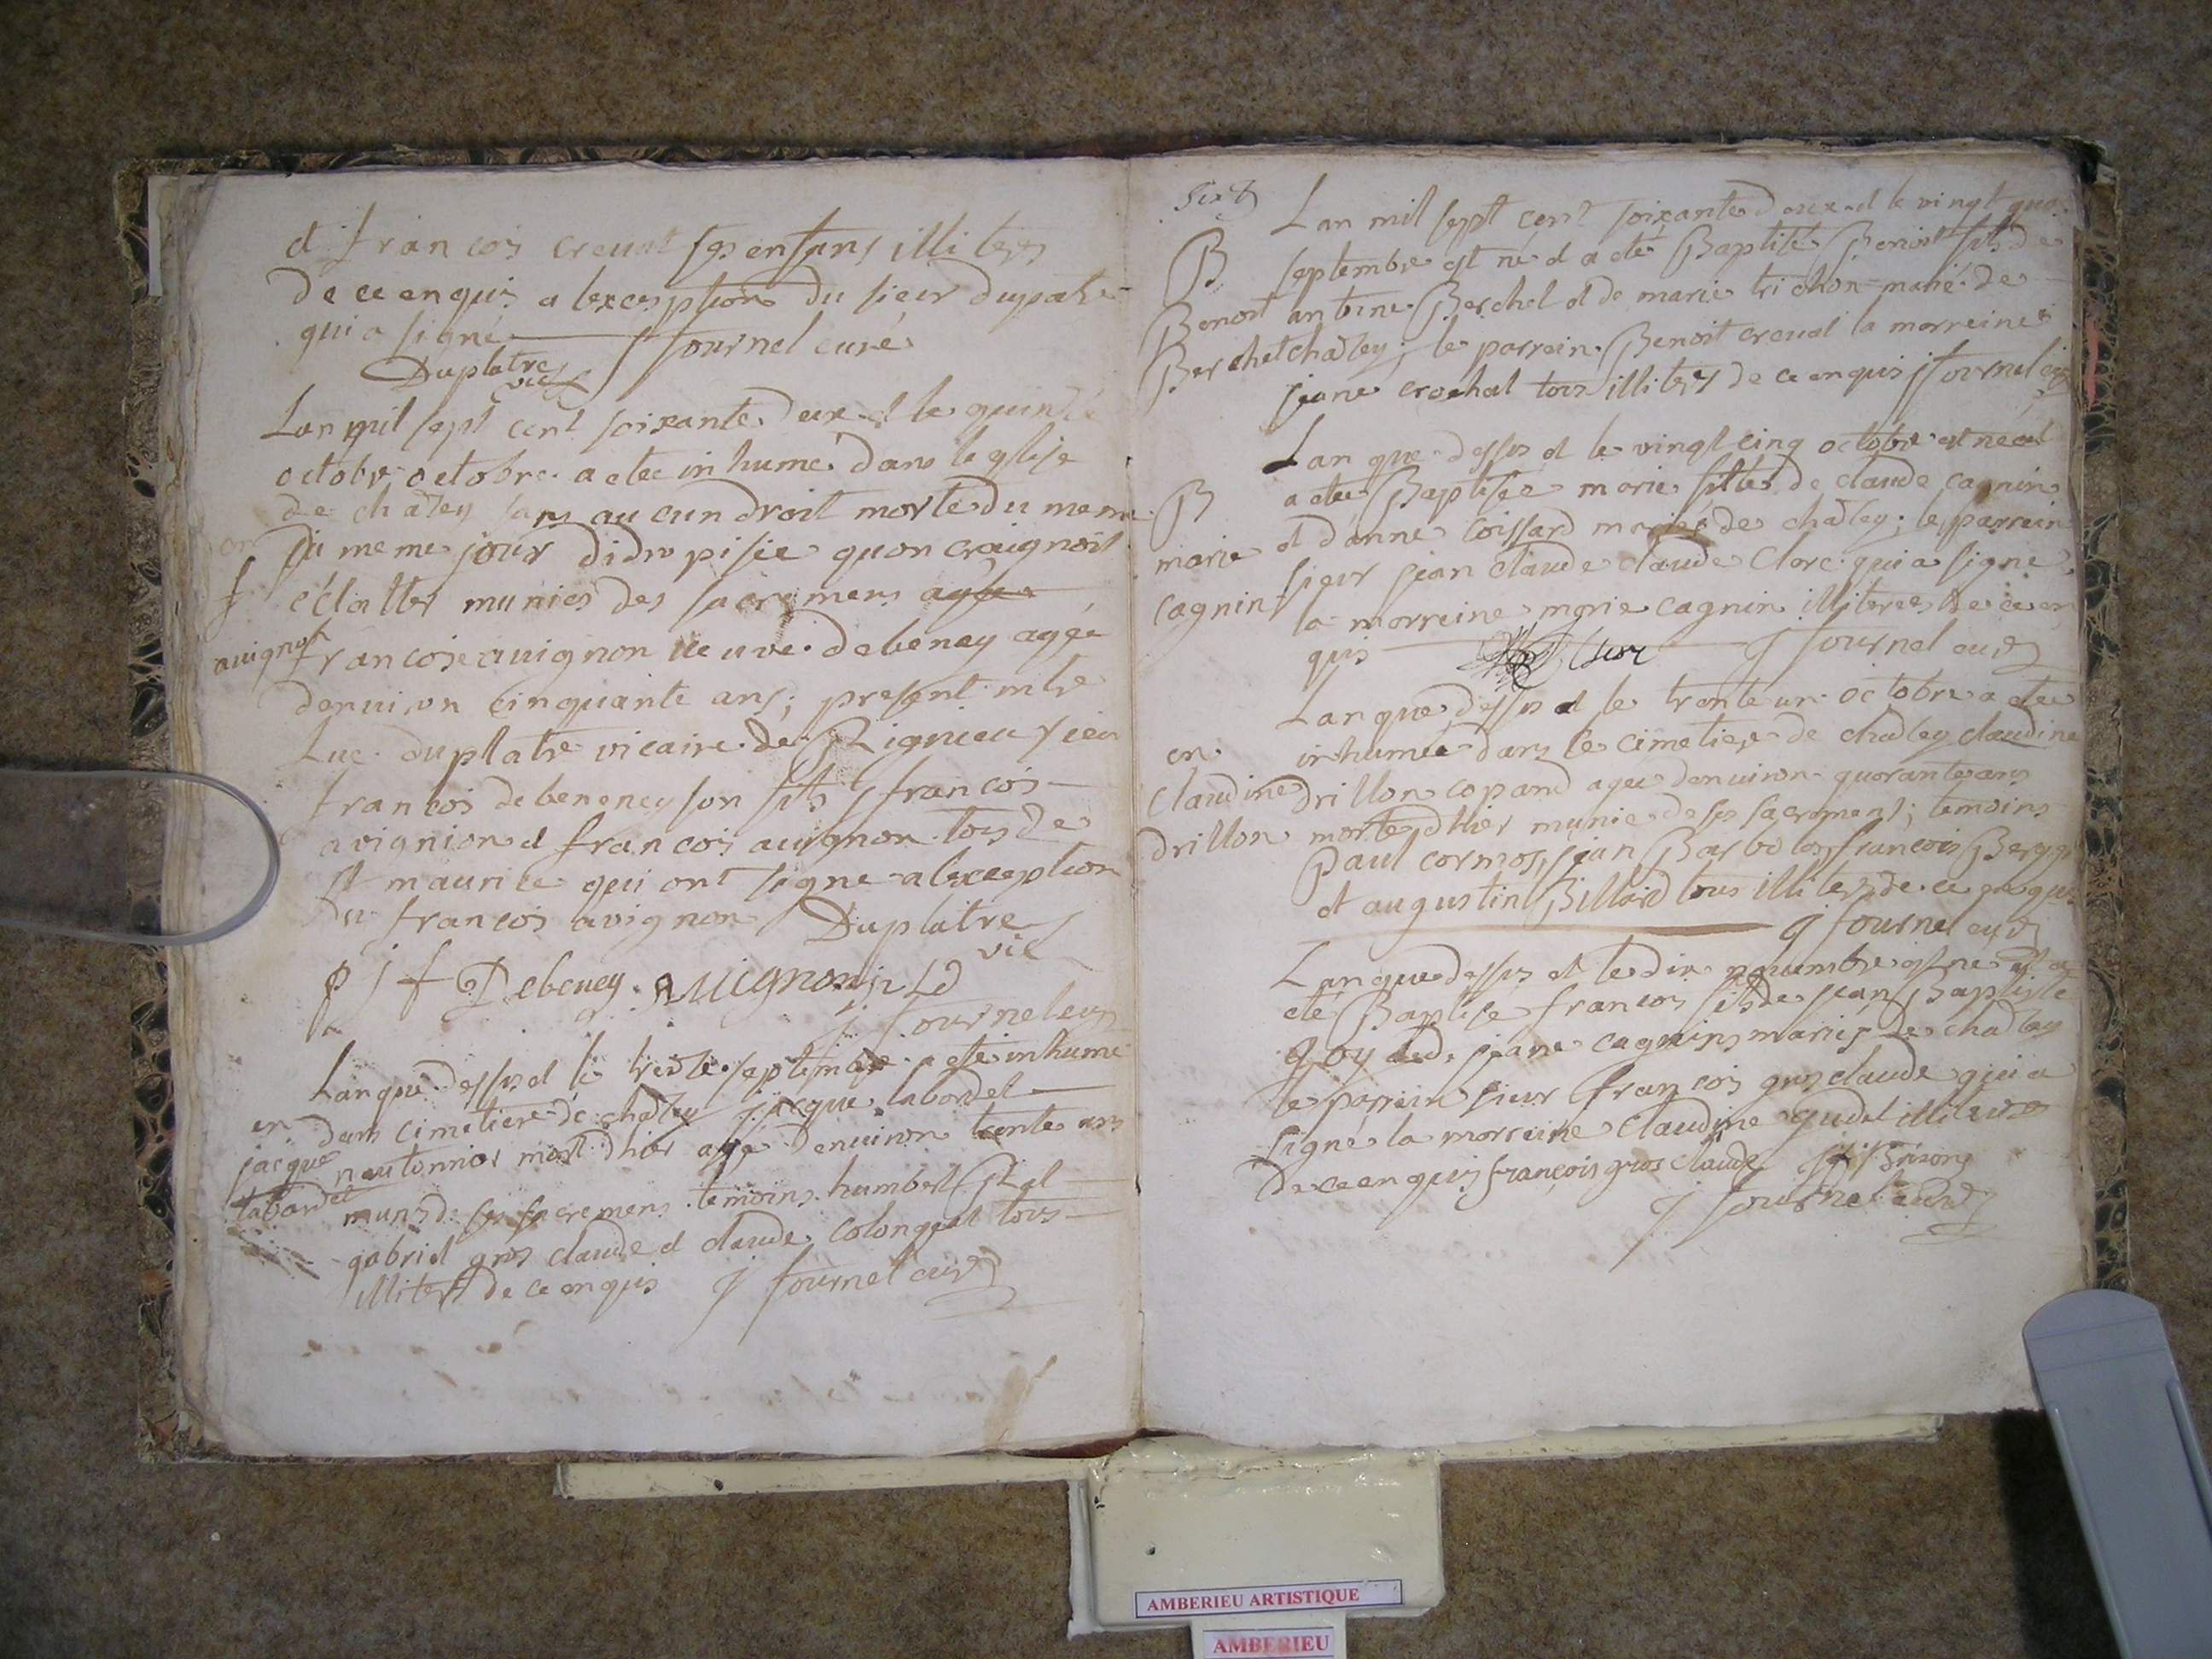 et francois creuat ses enfans illiters
de ce enquis a lexception du sieur duplatre
qui a signé J fournel curé
Duplatre
vic
Lan mil sept cent soixante deux et le quinze
octobr octobre a etee inhumé dans leglise
de chatey sans aucun droit morte du meme
du meme jour didropisie quon craignoit
éclatter munies des sacremens agée
francoise avignon veuve debeney agée
denviron cinquante ans; present mtre
Luc duplatre vicaire de Rignieu sieur
francois debeneney son fils francois
avignion et francois avignon tous de
st maurice qui ont signe a lexception
du francois avignon Duplatre
vic
p j f Debeney. avignon
J fournel curé
en
f
avignon
Lan que dessus et le trente septembre a eté inhumé
dans cimetiere de chatey jacque labordel
neutonnier mort dhier agé denviron trente ans
munis de ses sacremens temoins humbert
gabriel gros claude et claude colongeat tous
illiters de ce enquis J fournel curé
en
jacque
labordel
six
Lan mil sept cent soixante deux et le vingt
septembre est né et a eté Baptisé Benoit fils de
antoine Berchet et de marie trichon mariés de
chatey; le parrein Benoit creuat la marreine
jeane crochat tous illiters de ce enquis J fournel
B
Benoit
Berchet
Lan que dessus et le vingt cinq octobre est nee et
a etee Baptisée marie fille de claude cagnin
et d'anne coissard mariés de chatey; le parrein
sieur jean claude claude Clerc qui a signé
la marreine marie cagnin illiteree de ce en
quis Clerc J fournel curé
B
marie
cagnin
Lan que dessus et le trente un octobre a etee
inhumée dans le cimetiere de chatey claudine
drillon copand agee denviron quarante ans
morte dhier munie de ses sacremens; temoins
Paul cormos, jean Barbolat francois
et augustin Billard tous illiters de ce enquis
J fournel curé
en
claudine
drillon
Lan que dessus et le dix novembre est né et a
eté Baptisé francois fils de jean Baptiste
goy et de jeane cagnins mariés de chatey
le parrein sieur francois gros claude qui a
signé la marreine claudine gudet illiteree
de ce enquis françois gros claude Brison
J fournel curé
AMBERIEU ARTISTIQUE
AMBERIEU